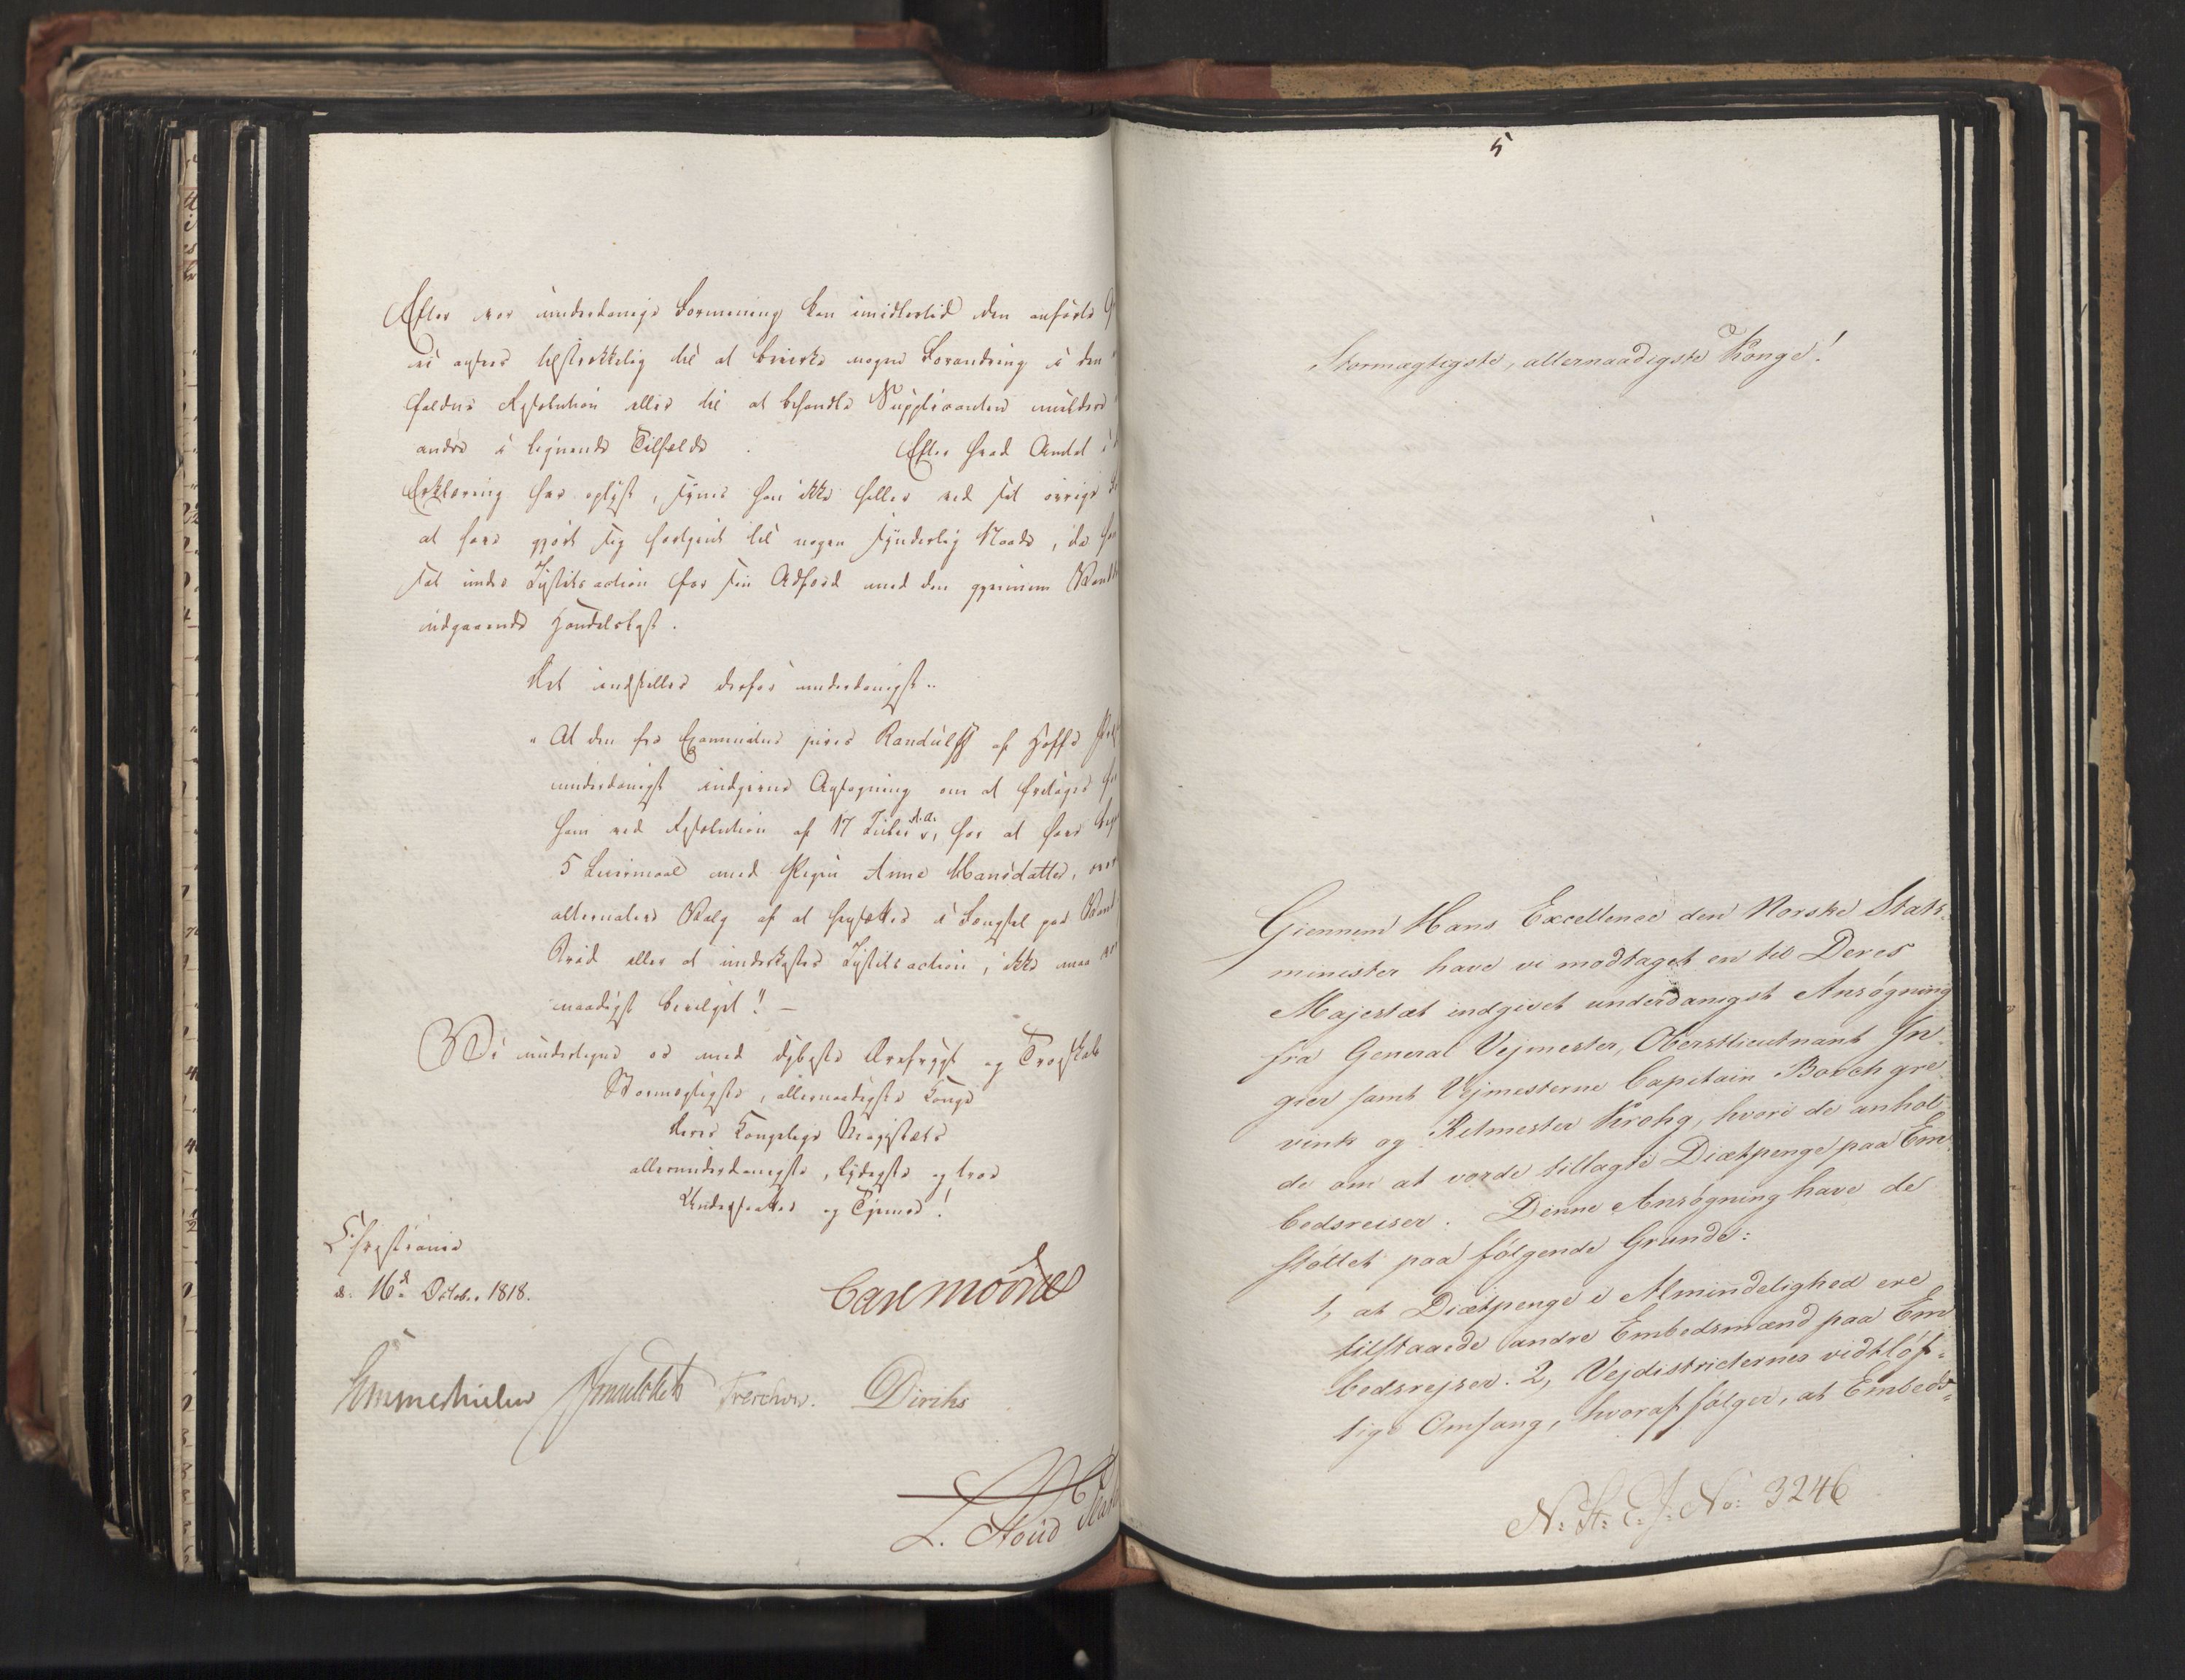 Efter vor underdanige Formening kan imidlertid den anførte
ei agtes tilstrækkelig til at bevirke nogen Forandring i den
faldne Resolution eller til at behandle Supplicanten mildere
andre i lignende Tilfælde. Efter hvad Amtet i
Erklæring har oplyst, synes han ikke heller ved sit øvrige
at have gjort sig fortjent til nogen synderlig Naade, da
sat under Justitsaction for sin Adfærd med den gjennem
indgaaende Handelspost.
Det indstilles derfor underdanigst:
"At den fra Examinatus juris Randulff af
underdanigst indgivne Ansøgning om at fritages
ham ved Resolution af 17 Juli d. A., for at have
5 Leiermaal med Pigen Anne Hansdatter,
alternative Valg af at hensættes i Fængsel paa Vand
Brød eller at underkastes Justitsaction, ikke maa
naadigst bevilget!" —
Vi undertegne os med dybeste Ærefrygt og Troeskab
Stormægtigste, allernaadigste Konge
Deres Kongelige Majestæts
allerunderdanigste, lydigste og troe
Undersaatter og Tjenere!
Christiania
d. 16d October 1818.
Carl Mörner
Sommerhielm Treschow. Diriks
5
Stormægtigste, allernaadigste Konge!
Giennem Hans Excellence den Norske Stats-
minister have vi modtaget en til Deres
Majestæt indgivet underdanigst Ansøgning
fra General Vejmester, Oberstlieutnant In-
gier samt Vejmesterne Capitain Borchgre-
vink og Ritmester Krohg, hvori de anhol-
de om at vorde tillagte Diætpenge paa Em-
bedsreiser. Denne Ansøgning have de
støttet paa følgende Grunde:
1, at Diætpenge i Almindelighed ere
tilstaaede andre Embedsmænd paa Em-
bedsrejser. 2, Vejdistricternes vidtløf-
tige Omfang, hvoraf følger, at Embeds-
N: St: E: J: No: 3246